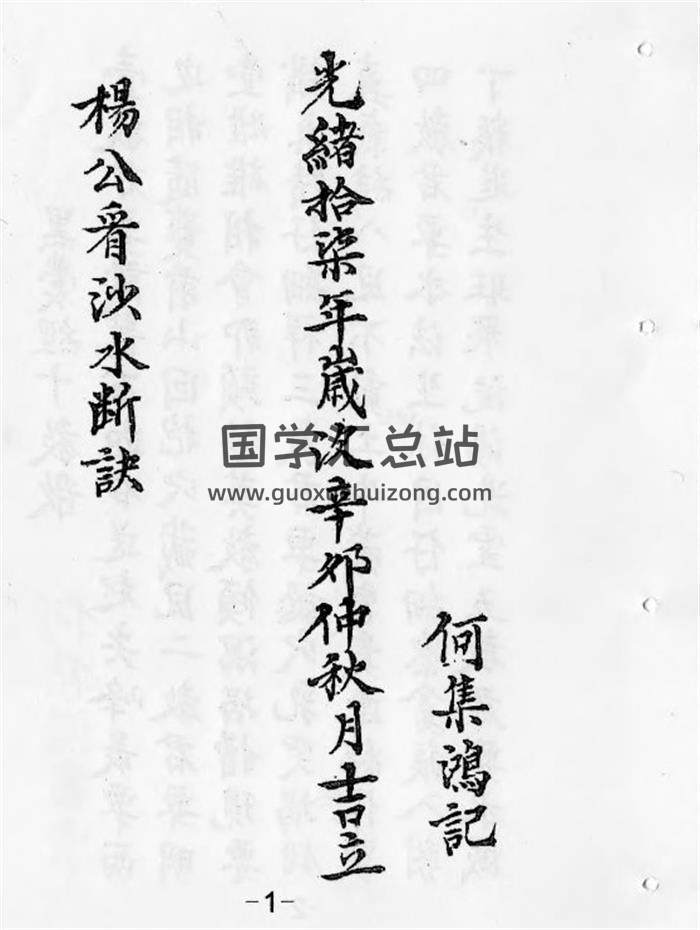 何集鴻記
光緒拾柒年歲次辛卯仲秋月吉立
楊公看沙水断訣
国学汇总站
www.guoxuehuizong.com
-1-